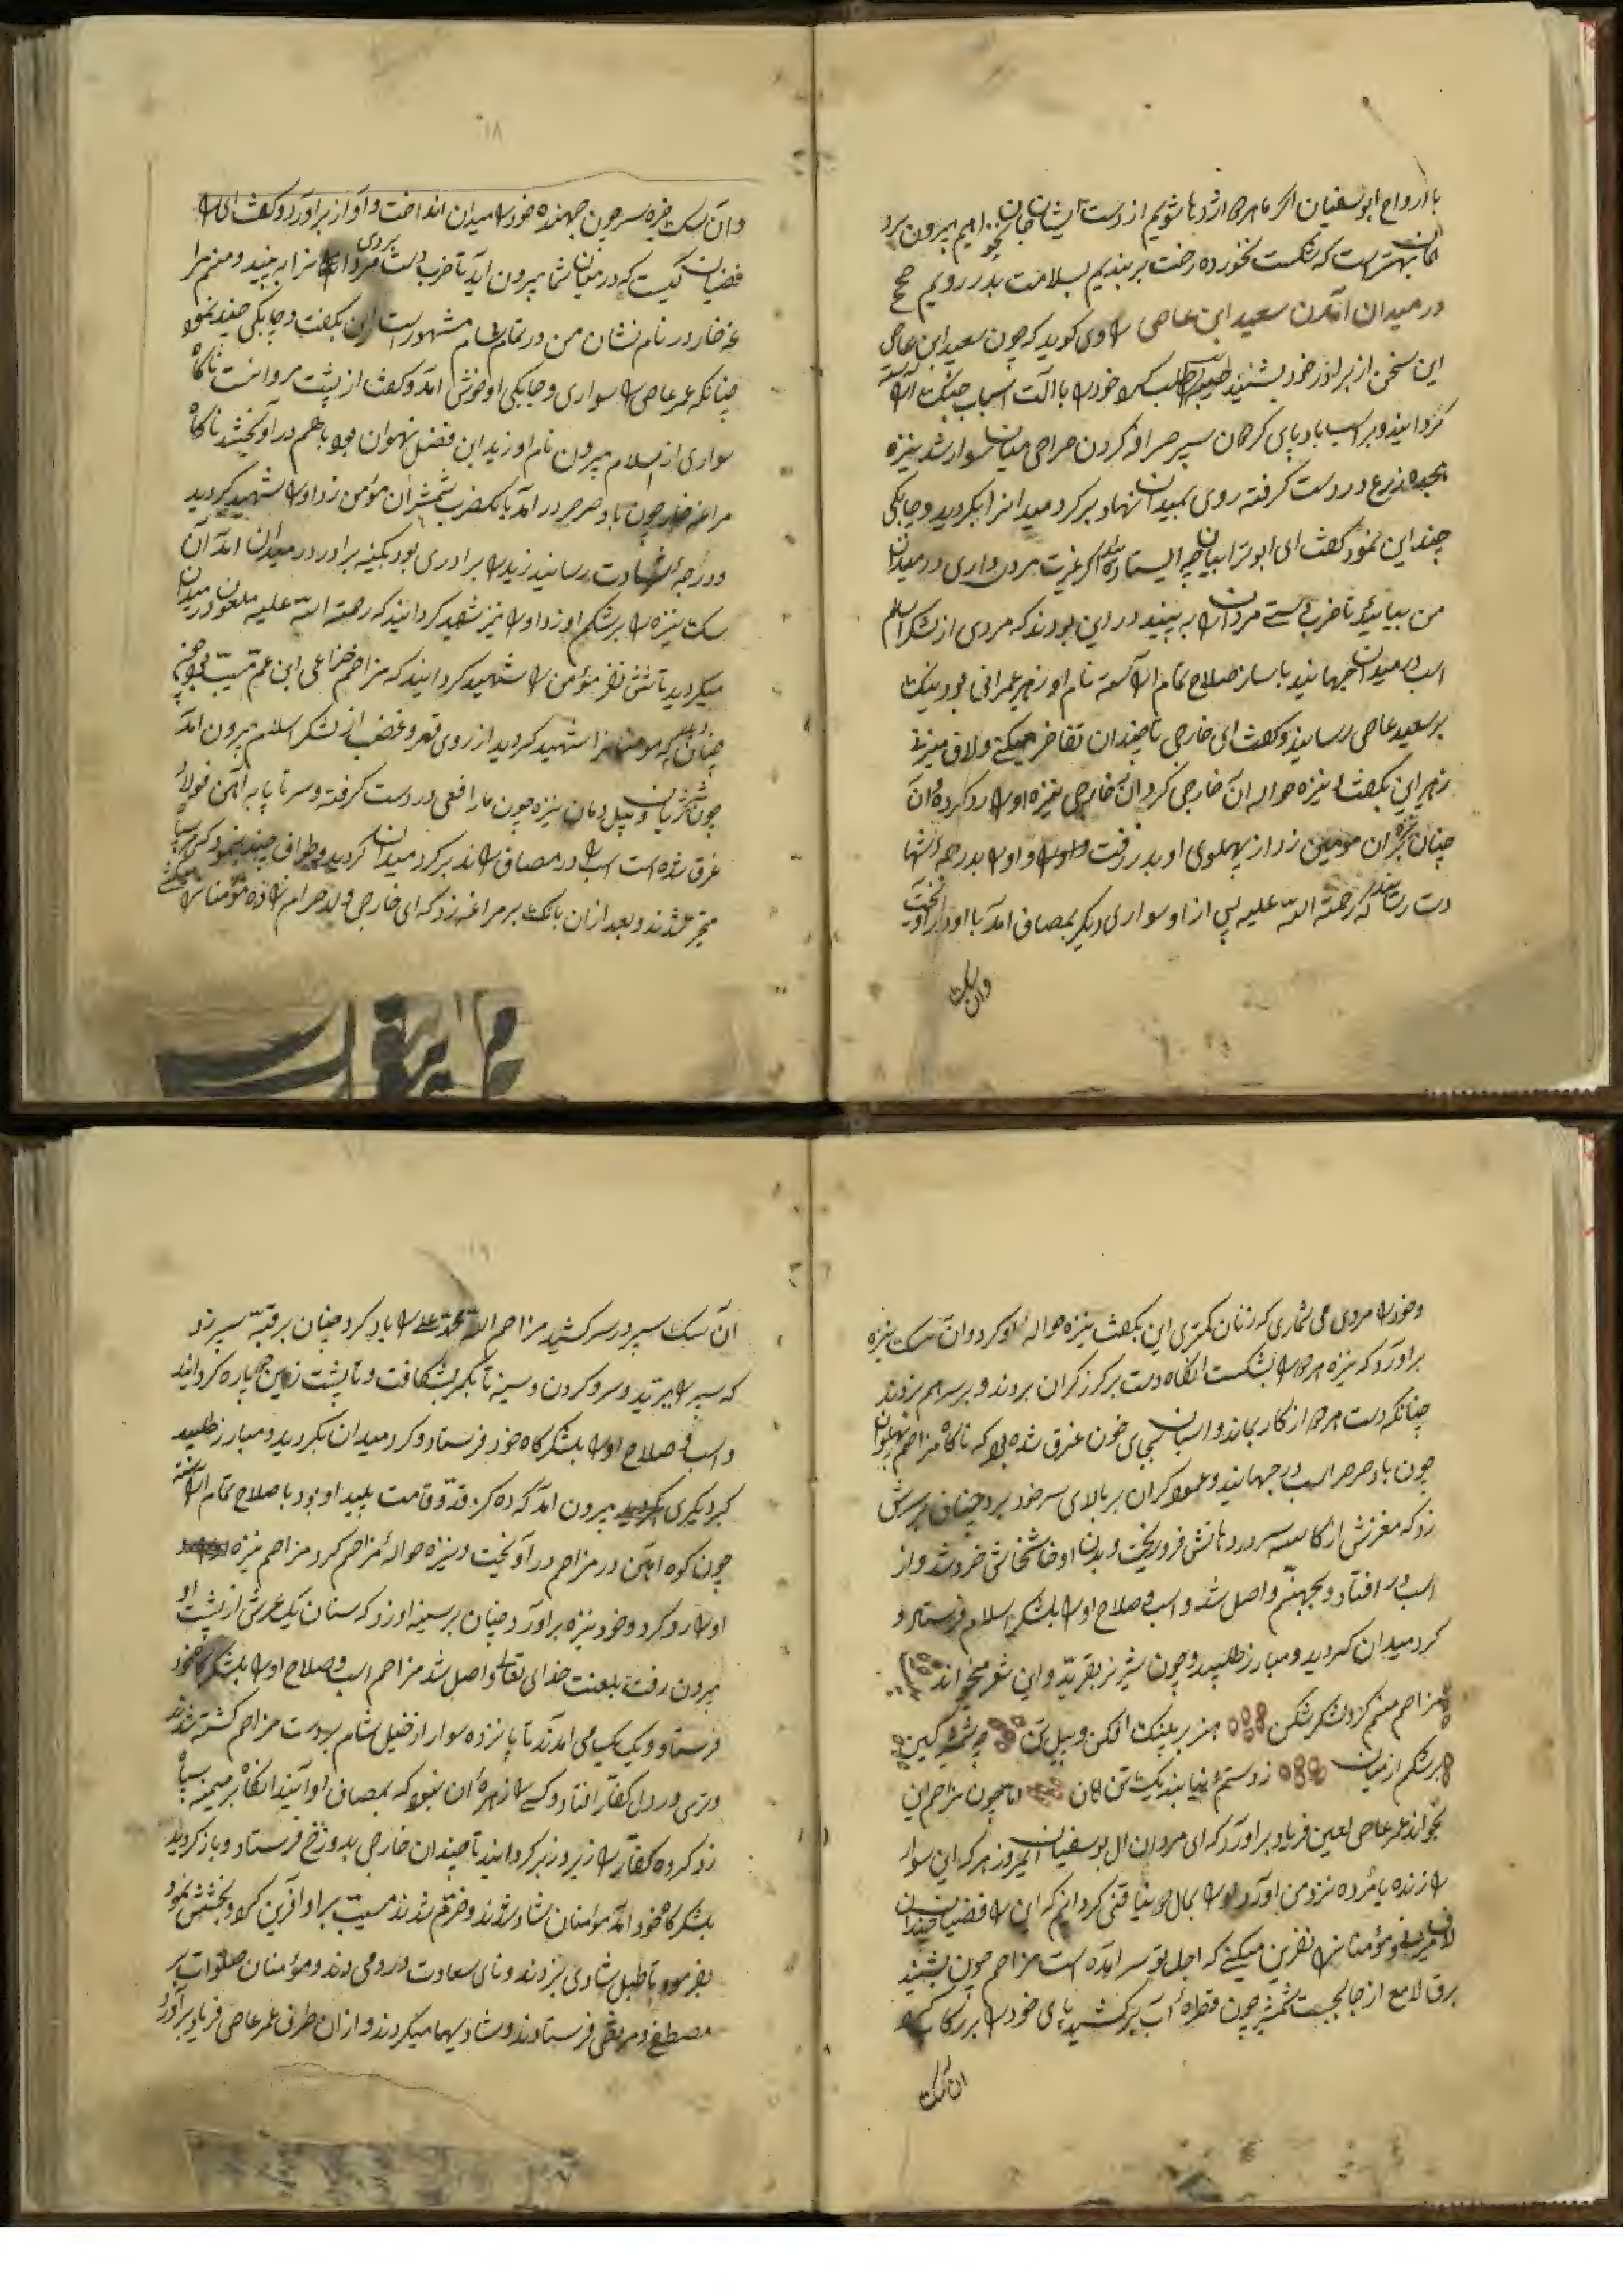 با ارواح ابوسفیان اگر ما هر دو اژدها شویم از دست ایشان جان نخواهیم بیرون برد
همان بهتر است که شکست نخورده رخت بربندیم بسلامت بدر رویم
در میدان آمدن سعید ابن عاصی راوی کوید که چون سعید ابن عاص
این سخن از برادر خود بشنید طلب کرد خود را با آلت اسباب جنک آراسته
کردانید و بر اسب بادپای سوار شد نیزه
هجده ذرع در دست کرفته روی بمیدان نهاد بر کرد میدانرا بکردید و چابکی
چند این نمود کفت ای ابوترابیان چه ایستاده اید اکر غیرت مردی داری در میدان
من بیائید تا ضرب دستی مردان را به بینید در این بودند که مردی از لشکر اسلام
اسب در میدان جهانید با ساز صلاح تمام آراسته نام او زهیر عمرانی بود نیک
بر سعید عاصی رسانید و کفت ای خارجی تا چندان تفاخر میکنی و لاف میزنی
زهیر این بکفت و نیزه حواله آن خارجی کرد آن خارجی نیزه او را رد کرده و آن
چنان نیزه بر آن مومن زد از پهلوی او بدر رفت و او را بدرجه شها
دت رسانید که رحمة الله علیه پس از او سواری دیکر بمصاف آمد با او در آویخت
وان سک
۱۸
و آن سک خیره سر چون جهنده خود را میدان انداخت و آواز برآورد و کفت ای را
فضیان کیست که در میان شما بیرون آید تا ضرب دست مردی مردانرا به بیند و منم مرا
غه خار در نام نشان من در تمام شام مشهور است این بکفت و چابکی چند نمود
چنانکه عمر عاصی را سواری و چابکی او خوش آمد و کفت از پشت مروانست ناکاه
سواری از اسلام بیرون نام او زید ابن فضل نهروان بود باهم در آویختند ناکاه
مراغه خار چون باد صرصر در آمد با یکضرب شمشیر آن مؤمن زد او را شهید کردید
و درجه شهادت رسانید زید را برادری بود بکینه برادر در میدان آمد آن
سک نیزه را بر شکم او زد او را نیز شهید کردانید که رحمة الله علیه ملعون در میدان
میکردید تا شش نفر مؤمن را شهید کردانید که مزاحم خزاعی ابن عم مسیب بود
چنان دید که مومنانرا شهید کردید از روی قهر و غضب از لشکر اسلام بیرون آمد
چون شیر ژیان و پیل دمان نیزه چون مار افعی در دست کرفته و سر تا پا به آهن فولاد
غرق شده است اسب را در مصاف راند بر کرد میدان کردید و طواف چند بنمود که هر دو سپاه
متحیر شدند و بعد از آن بانک بر مراغه زد که ای خارجی ولد حرام زاده مؤمنانرا میکشی
و خود را مردی می شماری که زنان کمتری این بکفت نیزه حواله او کرد و آن سک نیزه
برآورد که نیزه هر دو را بشکست انکاه دست بر کرز کران بردند و بر سر هم بزدند
چنانکه دست هر دو از کار بماند و اسبان بجای خون عرق شده بود که ناکاه مزاحم پهلوان
چون باد صرصر اسب را بر جهانید و عمود کران بر بالای سر خود برد چنان بر سرش
زد که مغزش از کاسه سر در دهانش فرو ریخت و بدن او خشخاش خرد شد و از
اسب در افتاد و بجهنم واصل شد و اسب و صلاح او را بلشکر اسلام فرستاد و
کرد میدان کردید و مبارز طلبید و چون شیر نر بغرید و این شعر میخواند
مزاحم منم کرد لشکر شکن هزبر پلنک افکن و پیل تن چه شمشیر کین
برشکم از میان ز دستم نیابند یک تن امان چون مزاحم این
بخواند عمر عاصی لعین فریاد برآورد که ای مردان ال بوسفیان امروز هر که این سوار
را زنده یا مرده نزد من آورد او را بمال دنیا غنی کردانم که ای رافضیان چندان
لاف میزنی و مؤمنانرا نفرین میکنی که اجل تو سر آمده است مزاحم چون بشنید
برق لامع از جا بجست شمشیر چون قطره آب برکشید پای خود را بر رکاب کرد
ان سک
۱۹
آن سک سپر در سر کشید مزاحم الله محمد علی را یاد کرد چنان بر قبه سپر زد
که سپر را ببرید و سر و کردن و سینه تا بکمر بشکافت و تا پشت زین چهار پاره کردانید
و اسب و صلاح او را بلشکرکاه خود فرستاد و کرد میدان بکردید و مبارز طلبید
کبر دیکری بیرون آمد که ده کز قد و قامت پلید او بود با صلاح تمام آراسته
چون کوه آهن در مزاحم در آویخت و نیزه حواله مزاحم کرد مزاحم نیزه
او را رد کرد و خود نیزه برآورد چنان بر سینه او زد که سنان یک عرش از پشت او
بیرون رفت بلعنت خدای تعالی واصل شد مزاحم اسب و صلاح او را بلشکرکاه خود
فرستاد و یک یک می آمدند تا پانزده سوار از خیل شام بر دست مزاحم کشته شدند
و ترسی در دل کفار افتاد و کسی را زهره آن نبود که بمصاف او آیند انکاه بر میمنه سپاه
زد کروه کفار را زیر و زبر کردانید تا چندان خارجی بدوزخ فرستاد و باز کردید
بلشکرکاه خود آمد مؤمنان شاد شدند و خرم شدند مسیب بر او آفرین کرد و بخشش نمود
بفرمود تا طبل شادی بزدند و نای سعادت در دمیدند و مؤمنان صلوات بر
مصطفی و مرتضی فرستادند و شادیها میکردند و از آن طرف عمر عاصی فریاد برآورد